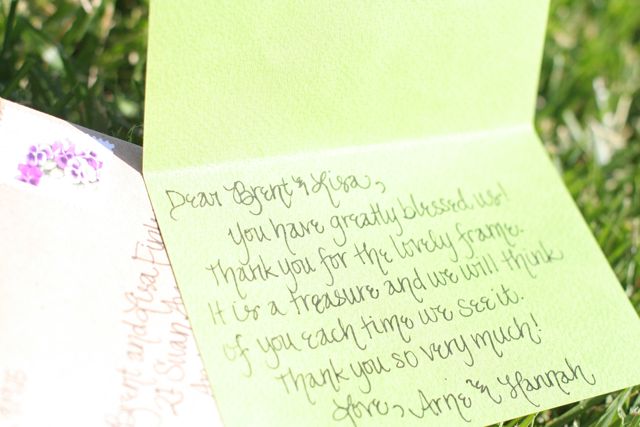 Dear Brent & Lisa,
You have greatly blessed us!
Thank you for the lovely frame.
It is a treasure and we will think
of you each time we see it.
Thank you so very much!
Love, Arne & Hannah
Brent and Lisa
Swan